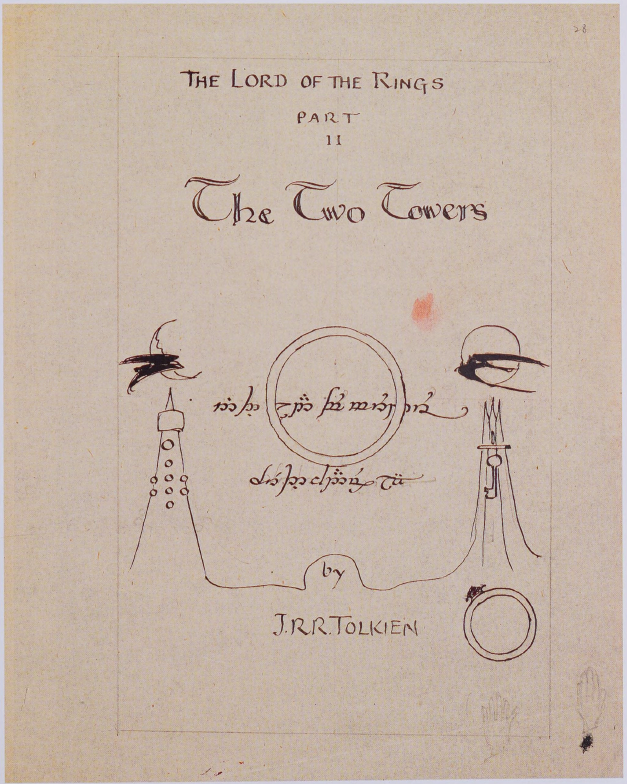 28
THE LORD OF THE RINGS
PART
II
The Two Towers
by
J.R.R. TOLKIEN